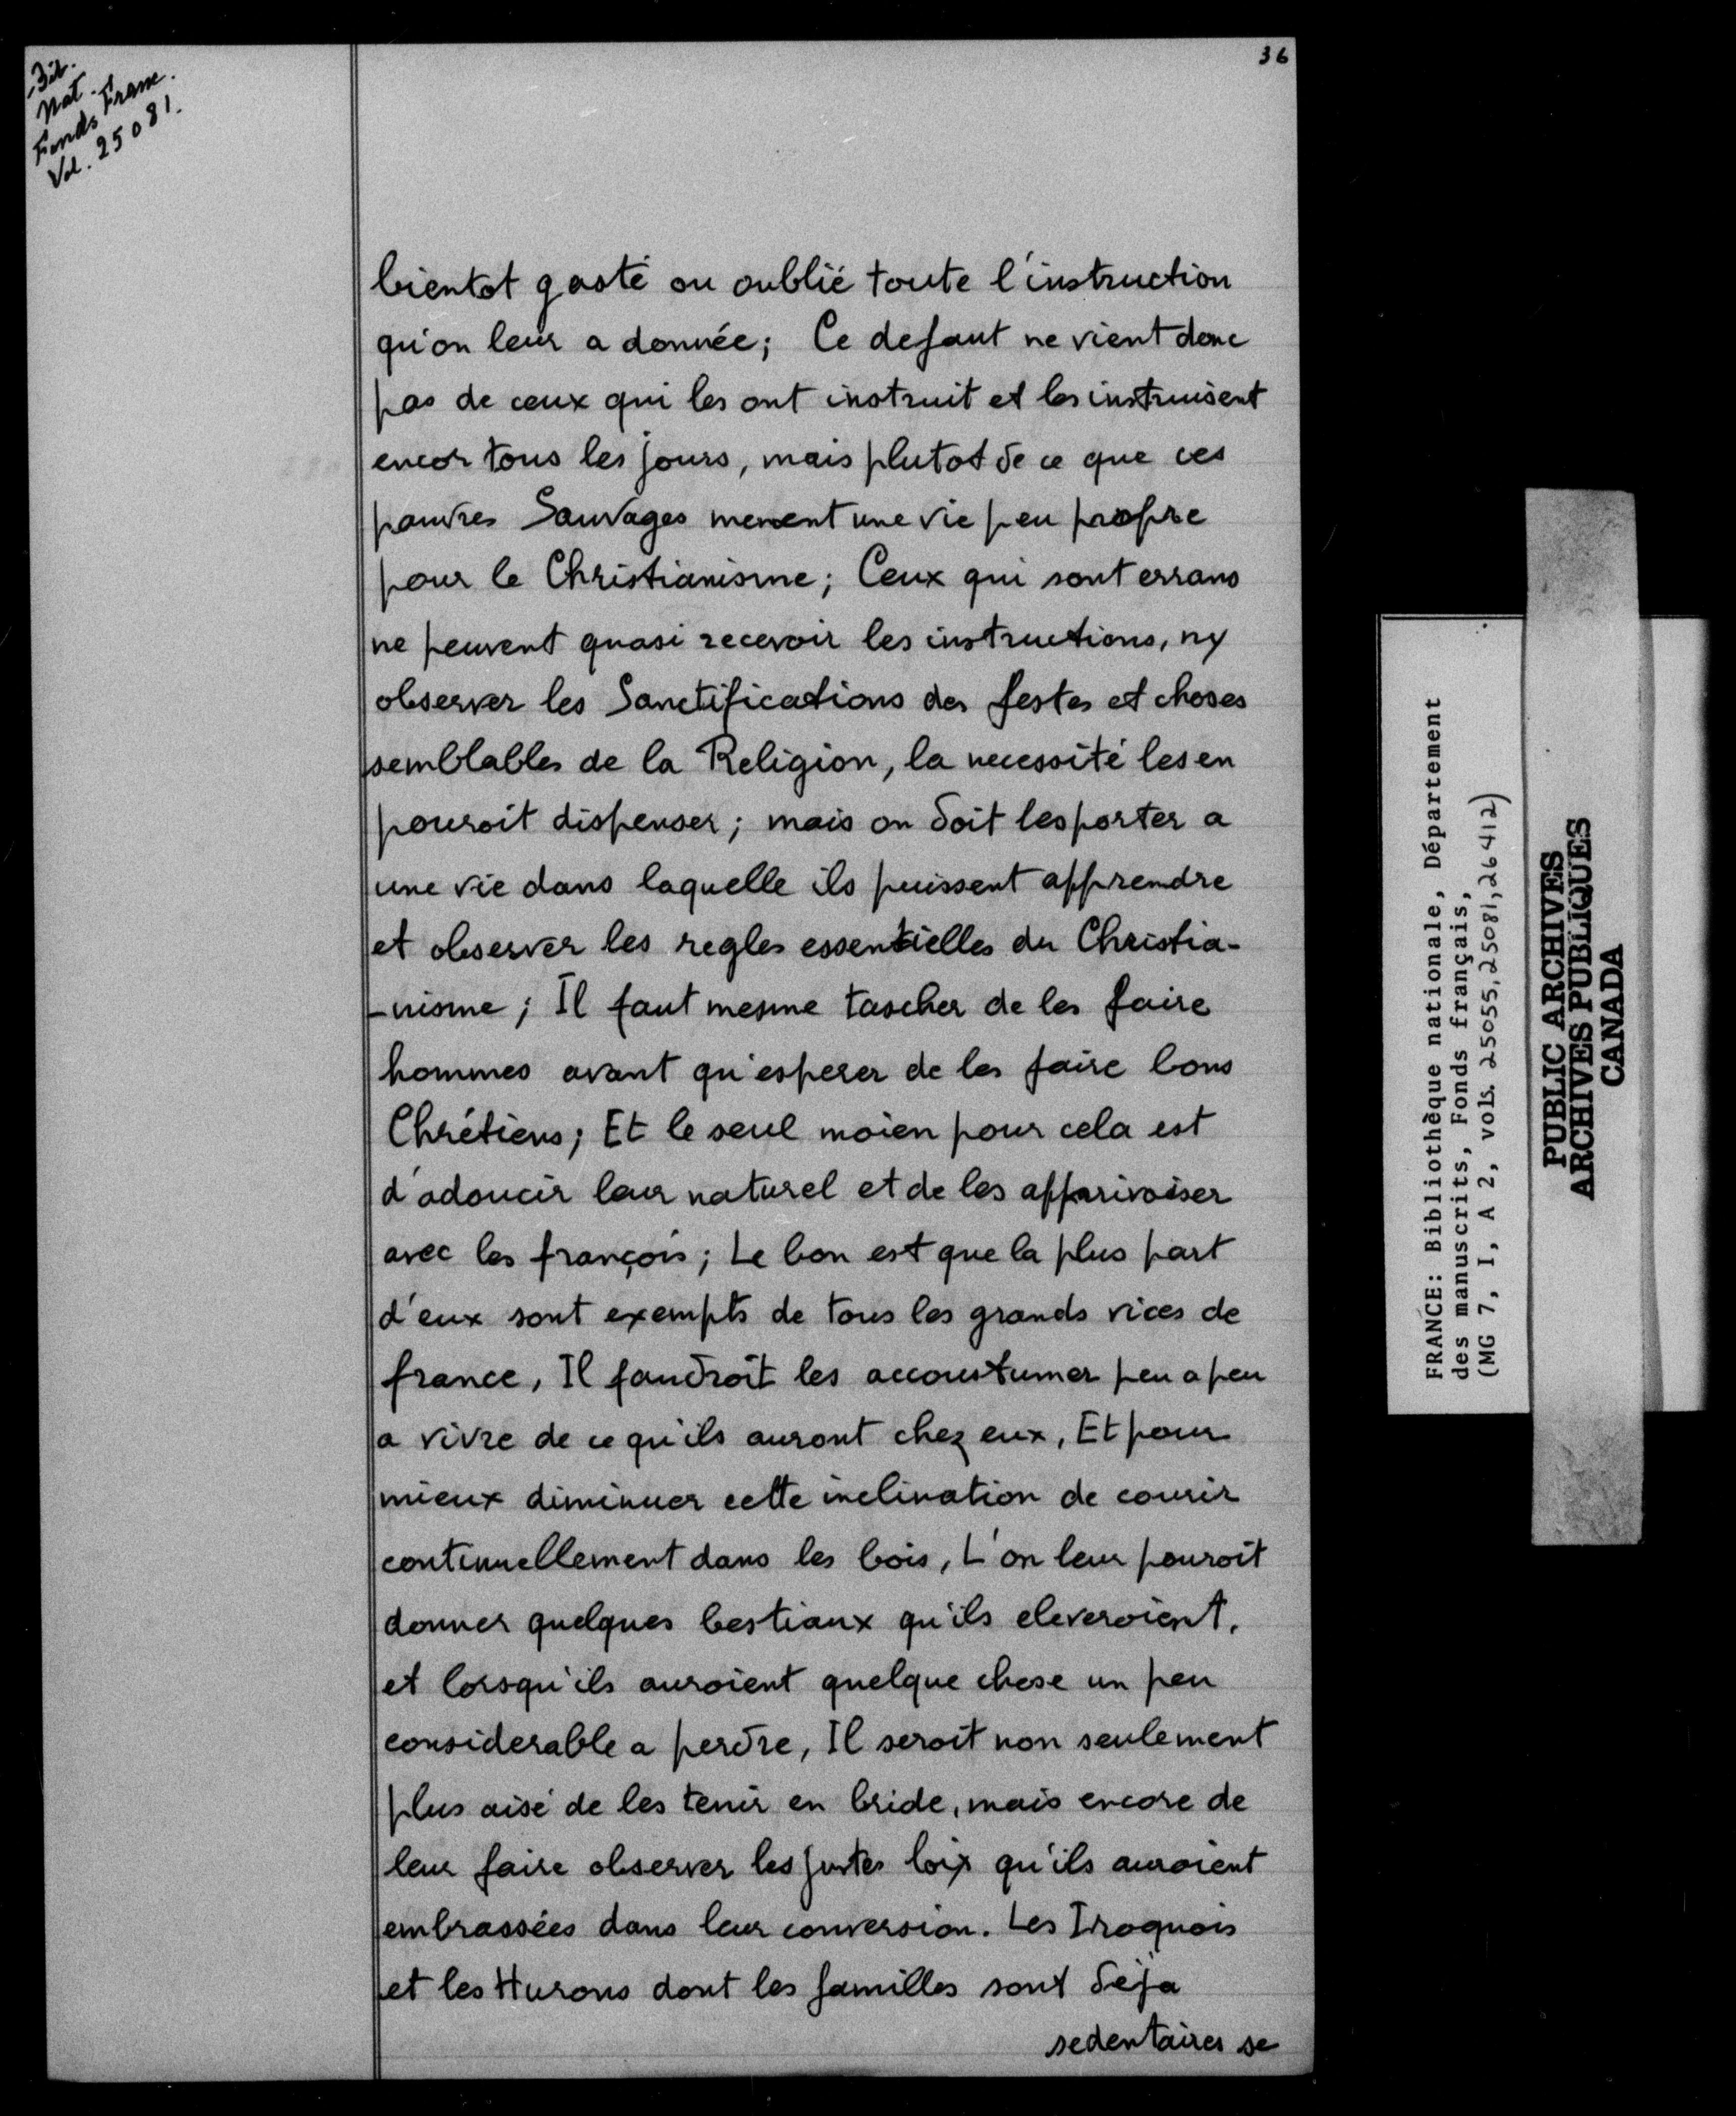 36
Bib.
Nat.
Fonds Franc.
Vol. 25081.
bientot gasté ou oublié toute l'instruction
qu'on leur a donnée; Ce defaut ne vient donc
pas de ceux qui les ont instruit et les instruisent
encor tous les jours, mais plutot de ce que ces
pauvres Sauvages menent une vie peu propre
pour le Christianisme; Ceux qui sont errans
ne peuvent quasi recevoir les instructions, ny
observer les Sanctifications des festes et choses
semblables de la Religion, la necessité les en
pouroit dispenser; mais on doit les porter a
une vie dans laquelle ils puissent apprendre
et observer les regles essentielles du Christia-
-nisme; Il faut mesme tascher de les faire
hommes avant qu'esperer de les faire bons
Chrétiens; Et le seul moien pour cela est
d'adoucir leur naturel et de les apparivoiser
avec les françois; Le bon est que la plus part
d'eux sont exempts de tous les grands vices de
france, Il faudroit les accoustumer peu a peu
a vivre de ce qu'ils auront chez eux, Et pour
mieux diminuer cette inclination de courir
continuellement dans les bois, L'on leur pouroit
donner quelques bestiaux qu'ils eleveroient,
et lorsqu'ils auroient quelque chose un peu
considerable a perdre, Il seroit non seulement
plus aisé de les tenir en bride, mais encore de
leur faire observer les justes loix qu'ils auroient
embrassées dans leur conversion. Les Iroquois
et les Hurons dont les familles sont déja
sedentaires se
FRANCE: Bibliothèque nationale, Département
des manuscrits, Fonds français,
(MG 7, I, A 2, vols. 25055, 25081, 26412)
PUBLIC ARCHIVES
ARCHIVES PUBLIQUES
CANADA